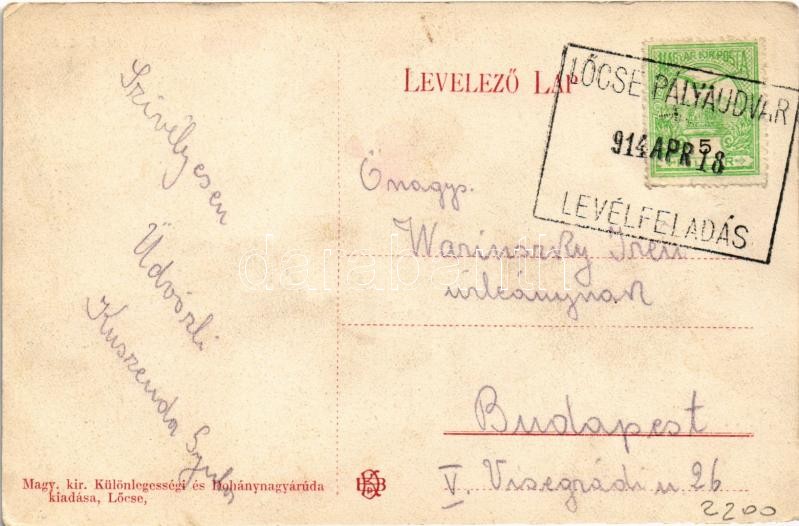 LEVELEZŐ LAP
MAGYAR KIR. POSTA
5
LŐCSE PÁLYAUDVAR
914 APR 18
LEVÉLFELADÁS
Szívélyesen
Üdvözli
Kuszenda Gyula
Őnagys.
Warinszky Iren
úrleánynak
Budapest
V. Visegrádi u 26
2200
Magy. kir. Különlegességi és Dohánynagyárúda
kiadása, Lőcse,
darabanth